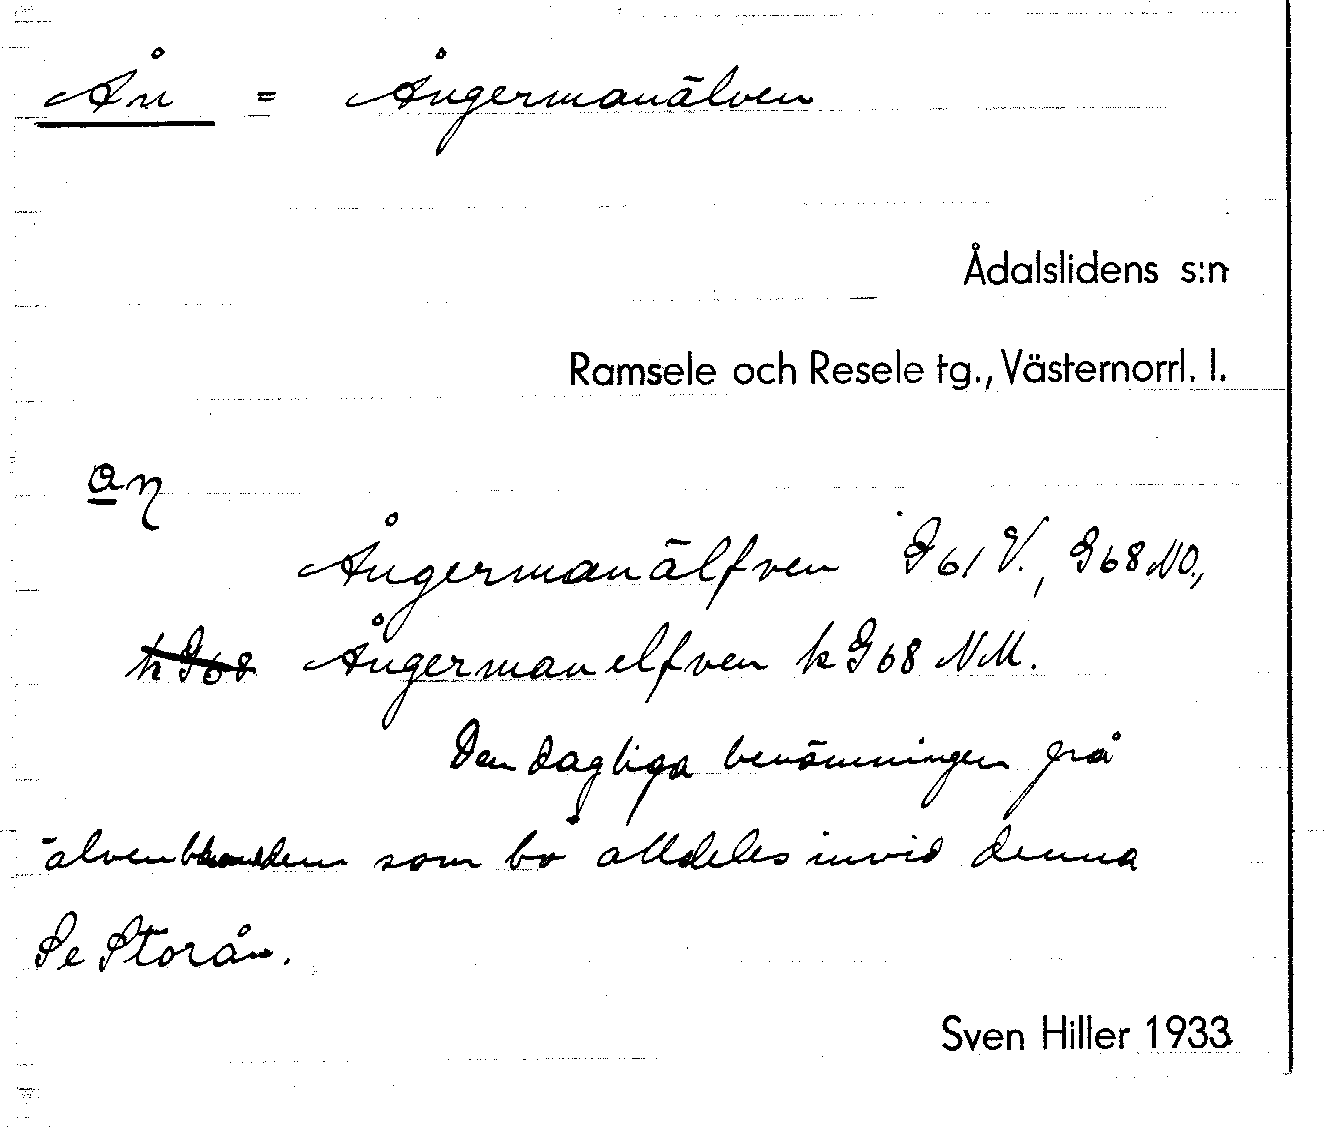 Ån = Ångermanälven
Ådalslidens s:n
Ramsele och Resele tg., Västernorrl. l.
Ångermanälfven G61 V., G68 NO.,
k G68 Ångermanelfven k G68 NM.
Den dagliga benämningen på
älven som bo alldeles invid denna
Se Storån.
Sven Hiller 1933